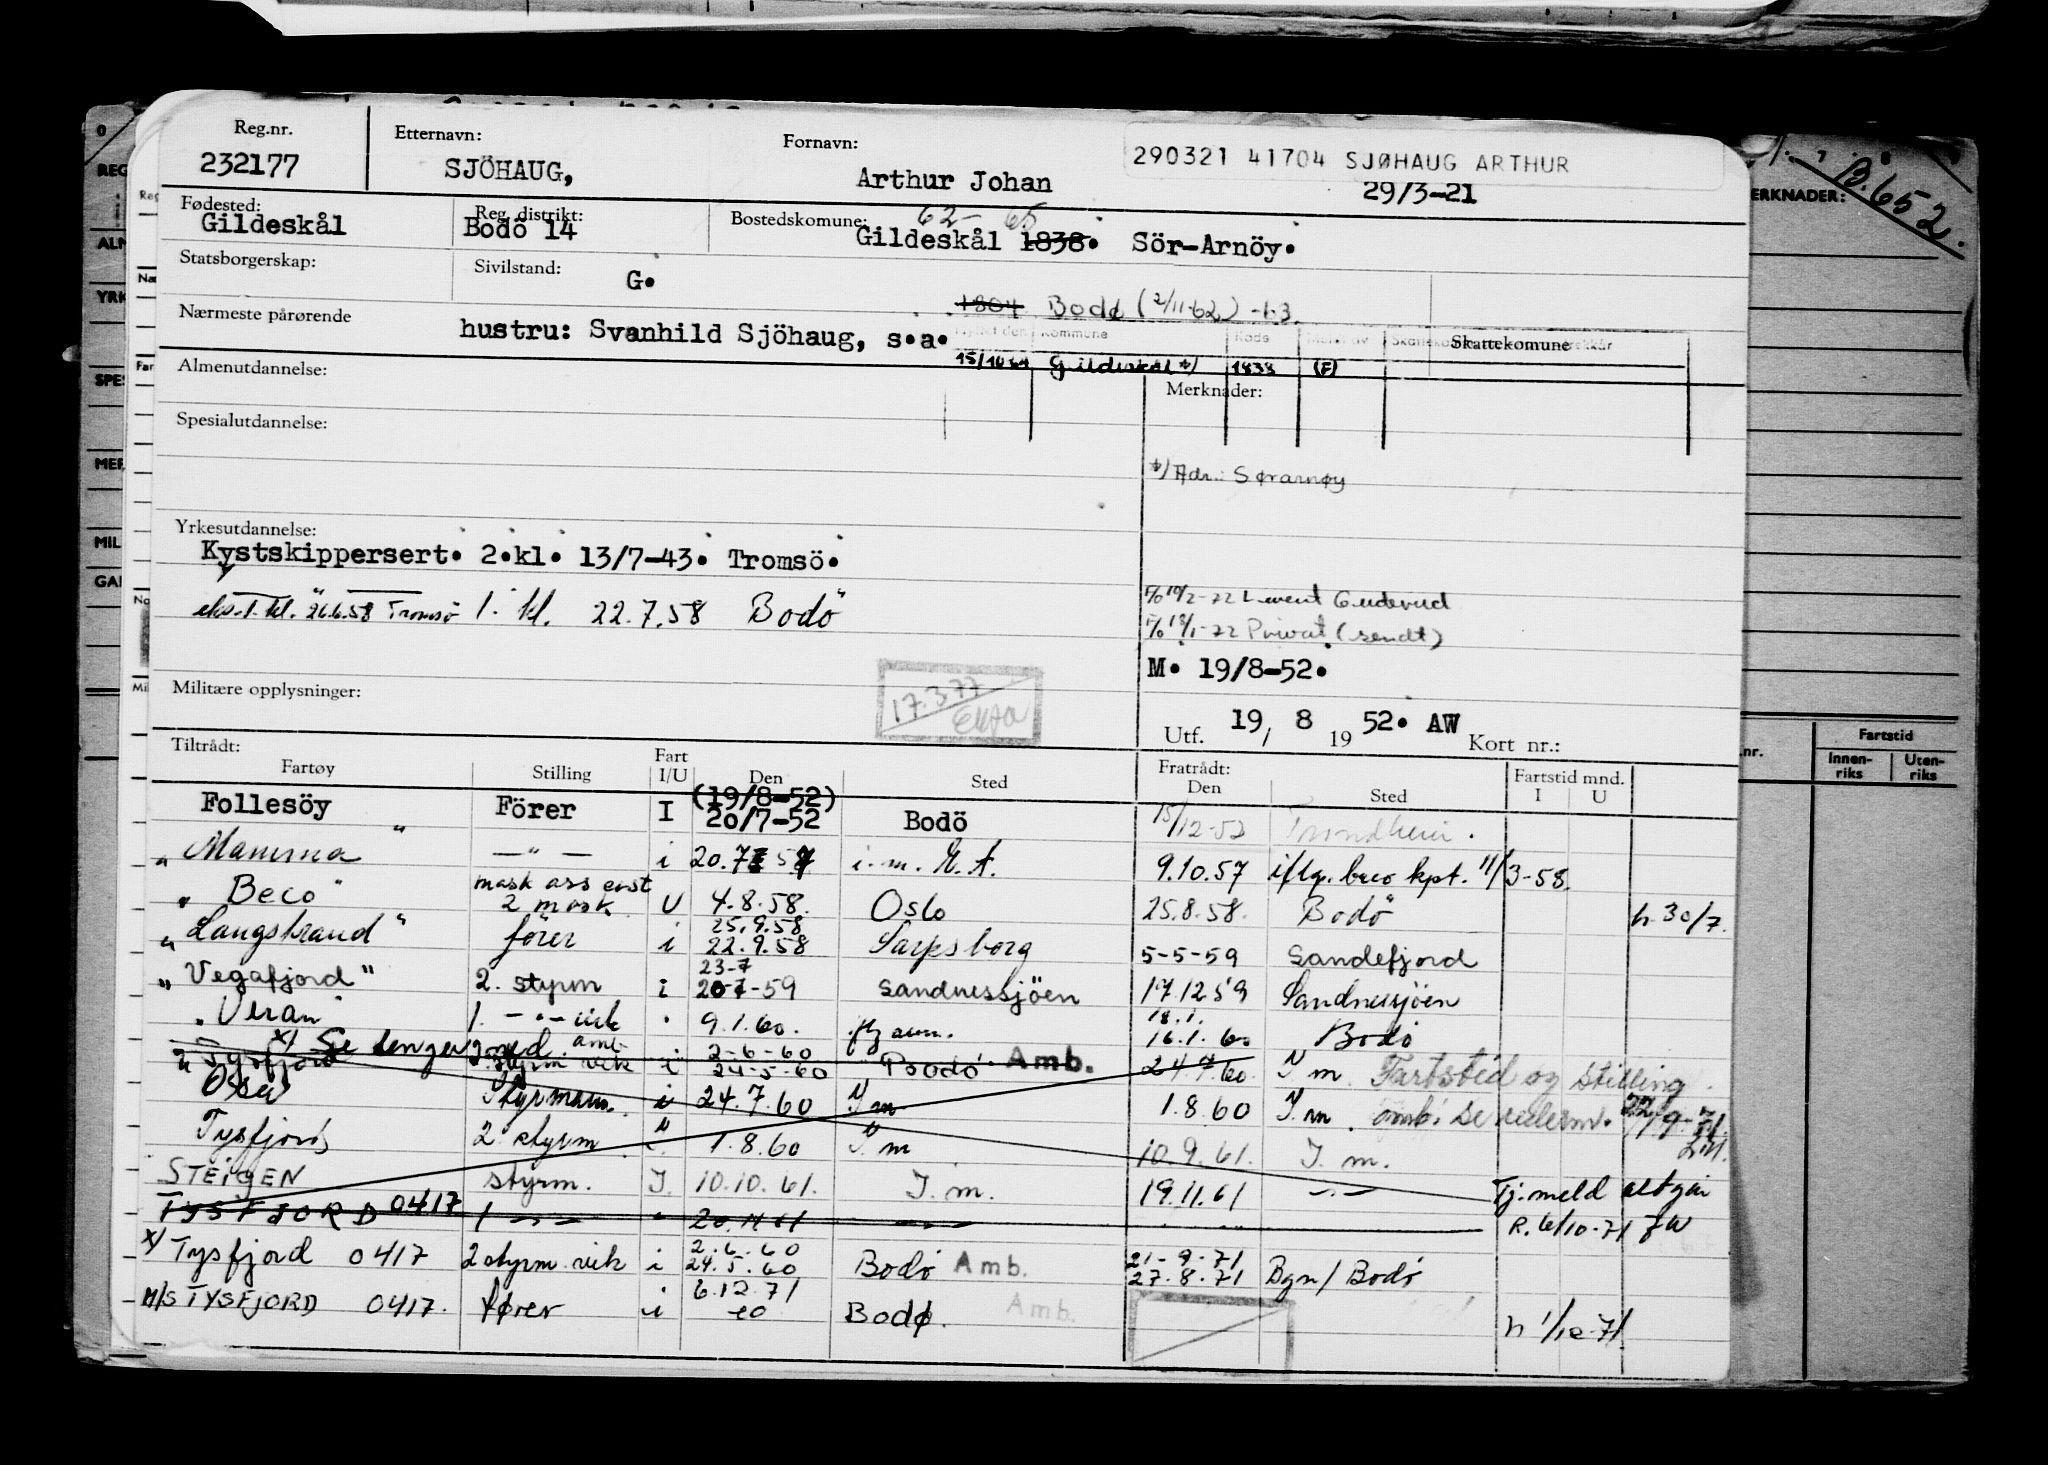 Reg.nr. Etternavn: Fornavn: 290321 41704 SJØHAUG ARTHUR
232177 SJÖHAUG, Arthur Johan 29/3-21
Fødested: Reg. distrikt: Bostedskomune: 62- 65
Gildeskål Bodö 14 Gildeskål 1838. Sör-Arnöy.
Statsborgerskap: Sivilstand: G.
1804 Bodø (2/11-62) -1-3
Nærmeste pårørende hustru: Svanhild Sjöhaug, s.a.
Kommune Kode Skattekomune
15/10 64 Gildeskål */ 1838 (F)
Almenutdannelse: Merknader:
Spesialutdannelse:
*/ Adr.: Sørarnøy
Yrkesutdannelse:
Kystskippersert. 2.kl. 13/7-43. Tromsö.
eks. 1. kl. 26.6.58 Tromsö 1. kl. 22.7.58 Bodö
Privat (sendt)
M. 19/8-52.
Militære opplysninger: 17.3.77
Utf. 19/ 8 19 52. AW Kort nr.:
Tiltrådt: Fart Fratrådt: Fartstid mnd.
Fartøy Stilling I/U Den Sted Den Sted I U
Follesöy Förer I (19/8-52) 20/7-52 Bodö 15/12-52 Trondheim.
"Mamma" —"— i 20.7 57 i.m. 9.10.57 kpt. 11/3-58.
"Beco" mask ass 2 mask U 4.8.58. Oslo 25.8.58. Bodö h. 30/7.
"Langstrand" förer i 25.9.58 22.9.58 Sarpsborg 5-5-59 Sandefjord
"Vegafjord" 2. styrm i 23-7 20-7-59 Sandnessjöen 17.12 59 Sandnessjöen
1. —"— vik 9.1.60. 18.1. 16.1.60 Bodö
x) Se lenger ned.
"Tysfjord 2. styrm vik i 2-6-60 24-5-60 Bodö Amb. 24.7.60 I m Fartstid og stilling
Styrmann. i 24.7.60 I m 1.8.60 I. m. amb. se nederst. 22/9-71.
Tysfjord 2 styrm 1.8.60 I m 10.9.61. I. m.
STEIGEN styrm. I. 10.10.61. I. m. 19.11.61 —"— Tj.meld
TYSFJORD 0417 1 —"— " 20.11 61 —"— R. 6/10-71
x/ Tysfjord 0417 2 styrm vik i 2.6.60 24.5.60 Bodö Amb. 21-9-71 27.8.71 Bgn/Bodö
M/S TYSFJORD 0417. fører i 6.12.71 Bodø. Amb. h 1/12-71.
B.652.
MERKNADER:
Fartstid
Innen- riks Uten- riks